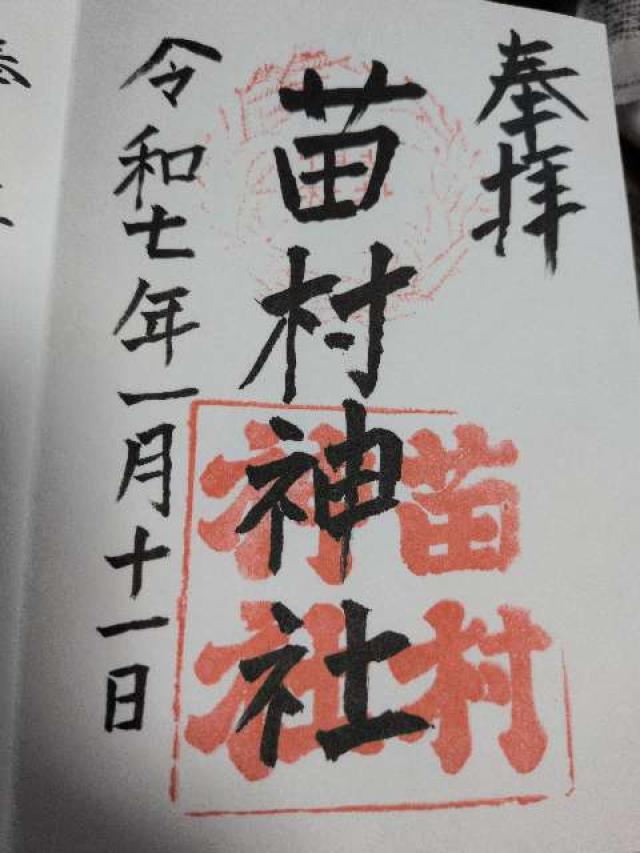 奉拝
苗村神社
令和七年一月十一日
苗村
神社